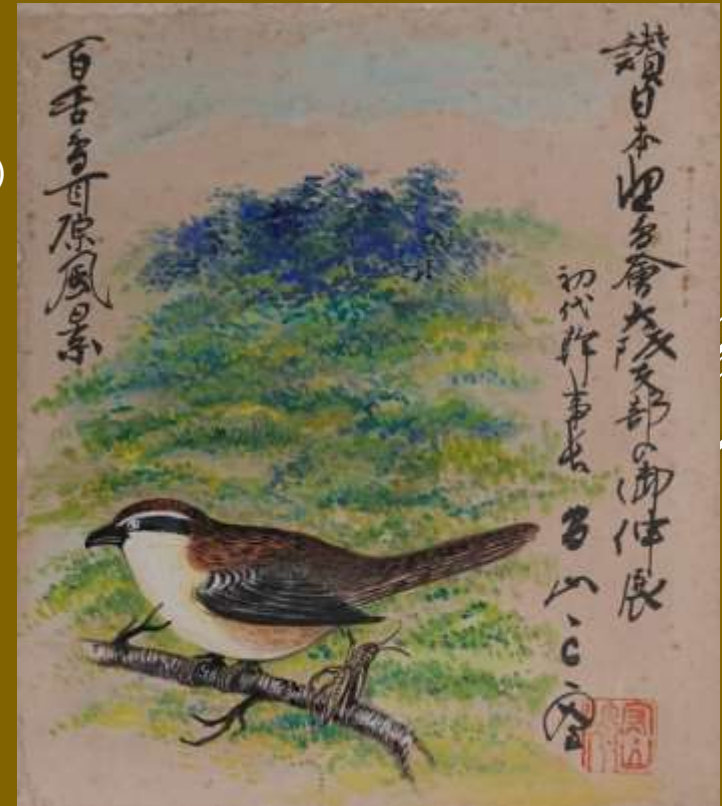 讃日本野鳥會大阪支部の御伸展
初代幹事長
百舌鳥耳原風景